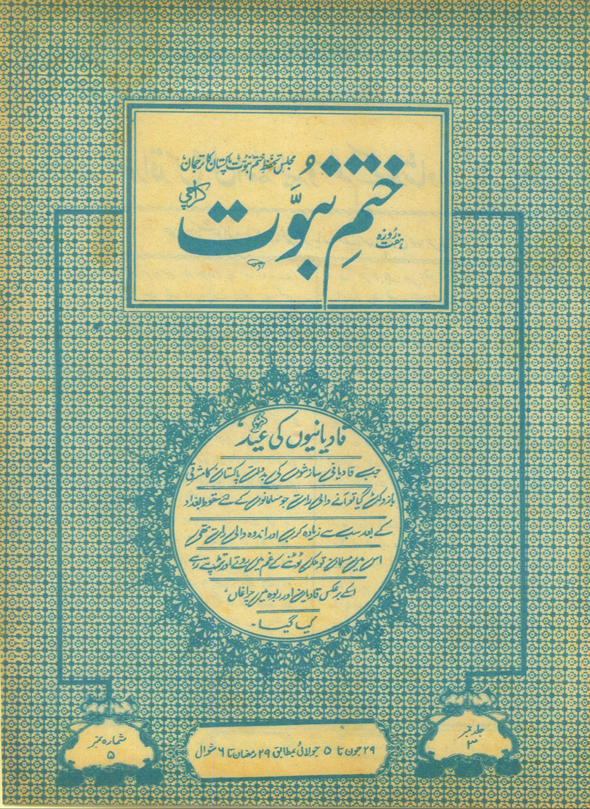 مجلس تحفظ ختم نبوت پاکستان کا ترجمان
ہفت روزہ
ختمِ نبوّت
کراچی
قادیانیوں کی عید
جب قادیانی سازشوں کی بدولت پاکستان کا مشرقی
بازو کٹ گیا تو آنے والی رات جو مسلمانوں کے لئے سقوط بغداد
کے بعد سب سے زیادہ کرب اور اندوہ والی رات تھی
اس میں مسلمان تو ملک ٹوٹنے کے غم میں روتے اور تڑپتے رہے
اسکے برعکس قادیان اور ربوہ میں چراغاں
کیا گیا۔
جلد نمبر
۳
۲۹ جون تا ۵ جولائی بمطابق ۲۹ رمضان تا ۶ شوال
شمارہ نمبر
۵